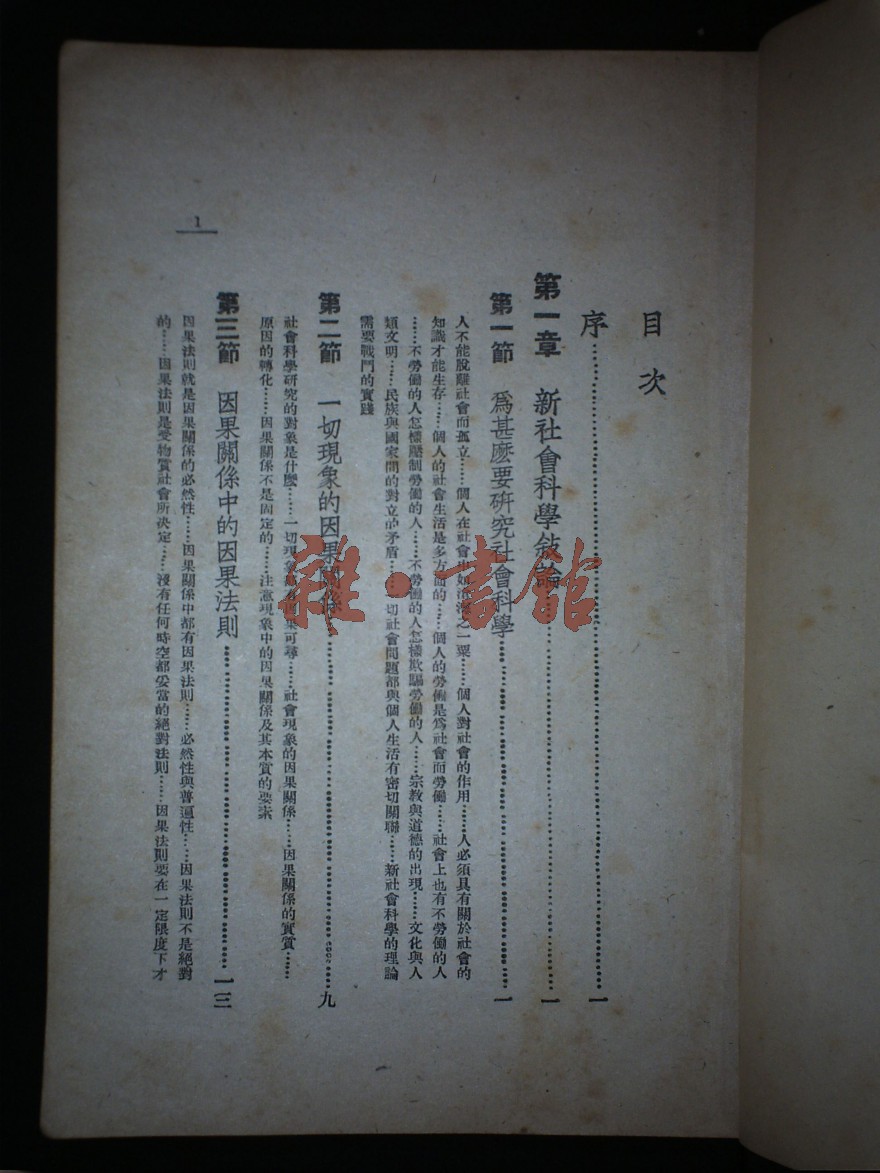 目次
序……一
第一章 新社會科學敍論……一
第一節 爲甚麽要研究社會科學……一
人不能脫離社會而孤立……個人在社會中如滄海之一粟……個人對社會的作用……人必須具有關於社會的
知識才能生存……個人的社會生活是多方面的……個人的勞働是爲社會而勞働……社會上也有不勞働的人
……不勞働的人怎樣壓制勞働的人……不勞働的人怎樣欺騙勞働的人……宗教與道德的出現……文化與人
類文明……民族與國家間的對立的矛盾……一切社會問題都與個人生活有密切關聯……新社會科學的理論
需要戰鬥的實踐
第二節 一切現象的因果關係……九
社會科學研究的對象是什麽……一切現象都有因果可尋……社會現象的因果關係……因果關係的實質……
原因的轉化……因果關係不是固定的……注意現象中的因果關係及其本質的要素
第三節 因果關係中的因果法則……一三
因果法則就是因果關係的必然性……因果關係中都有因果法則……必然性與普遍性……因果法則不是絕對
的……因果法則是受物質社會所決定……沒有任何時空都妥當的絕對法則……因果法則要在一定限度下才
1
雜·書館